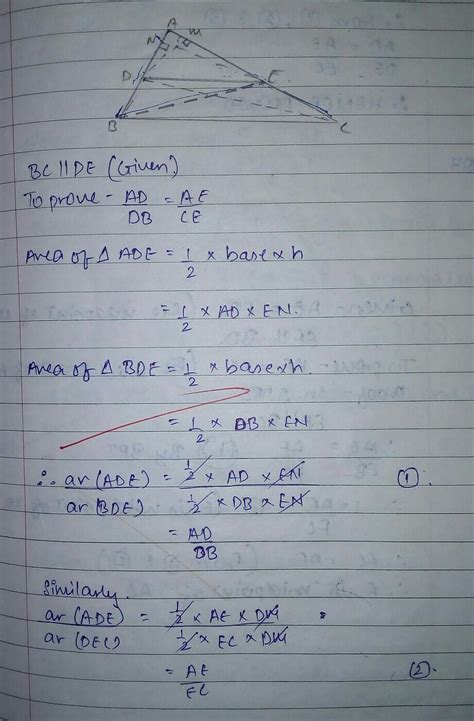 A
N M
D E
B C
BC || DE (Given)
To prove - AD/DB = AE/CE
Area of Δ ADE = 1/2 × base × h
= 1/2 × AD × EN.
Area of Δ BDE = 1/2 × base × h.
= 1/2 × DB × EN
∴ ar (ADE)/ar (BDE) = 1/2 × AD × EN/1/2 × DB × EN (1).
= AD/BB
Similarly.
ar (ADE)/ar (DEC) = 1/2 × AE × DM/1/2 × EC × DM
= AE/EC (2).